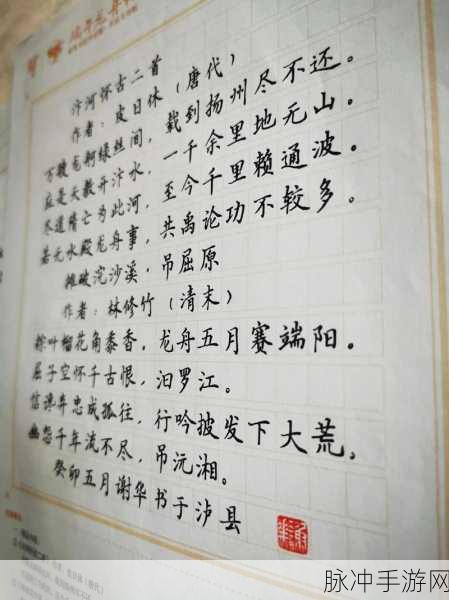 汴河怀古二首
作者：皮日休（唐代）
万艘龙舸绿丝间，载到扬州尽不还。
应是天教开汴水，一千余里地无山。
尽道隋亡为此河，至今千里赖通波。
若无水殿龙舟事，共禹论功不较多。
摊破浣沙溪·吊屈原
作者：林修竹（清末）
粽叶榴花角黍香，龙舟五月赛端阳。
屈子空怀千古恨，汨罗江。
信谗弃忠成孤往，行吟披发下大荒。
幽怨千年流不尽，吊沅湘。
癸卯五月谢华书于泸县
脉冲手游网